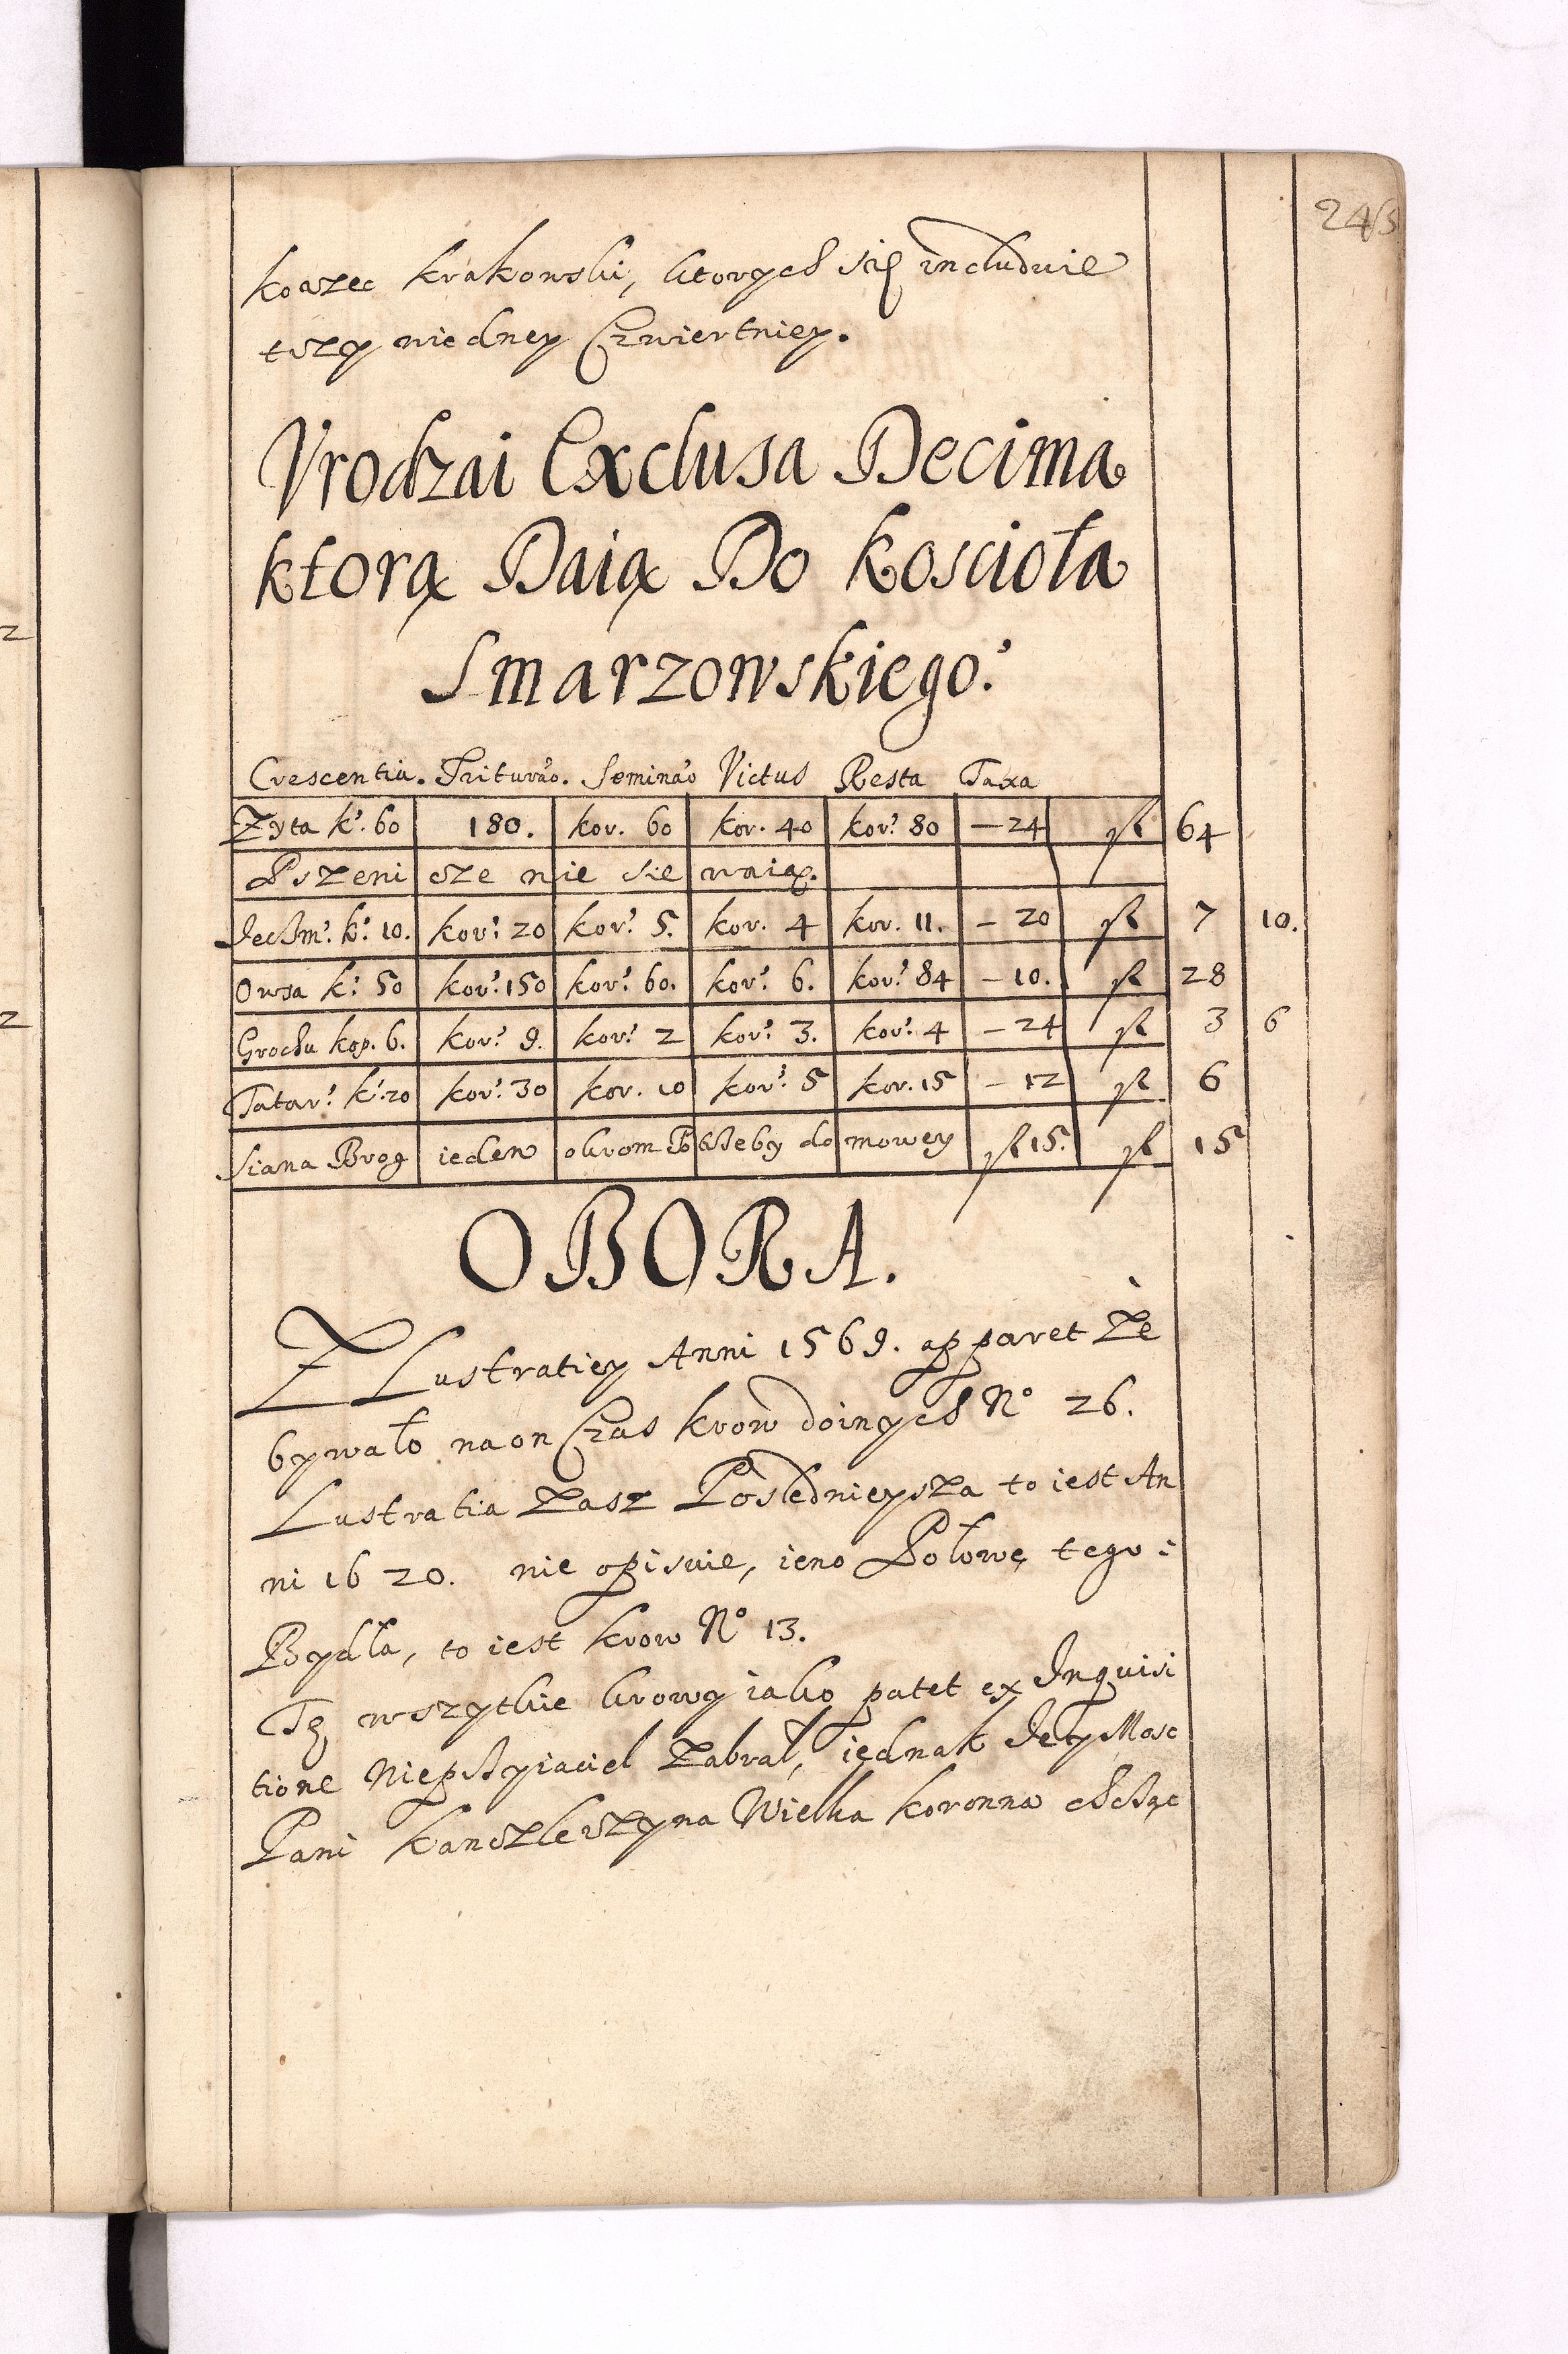 243
korzec krakowski, ktorych się includuie
trzy wiedney Czwiertniey.
Vrodzai Exclusa Decima
ktorą Daią Do koscioła
Smarzowskiego.
Crescentia. Triturao. Seminao Victus Resta Taxa
Zyta k. 60 180. kor. 60 kor. 40 kor. 80 — 24 fl 64
Pszenicze nie siewaią.
Jeczm. k. 10. kor. 20 kor. 5. kor. 4 kor. 11. — 20 fl 7 10.
Owsa k. 50 kor. 150 kor. 60. kor. 6. kor. 84 — 10. fl 28
Grochu kop. 6. kor. 9. kor. 2 kor. 3. kor. 4 — 24 fl 3 6
Tatar. k. 20 kor. 30 kor. 10 kor. 5 kor. 15 — 12 fl 6
Siana Brog ieden okrom Potrzeby domowey fl 15. fl 15
OBORA.
Z Lustratiey Anni 1569. apparet że
bywało naon Czas krow doinych No 26.
Lustratia zasz Poslednieysza to iest An
ni 1620. nie opisuie, ieno Połowę tego
Bydła, to iest krow No 13.
Te wszytkie krowy iako patet ex Inquisi
tione Nieprzyiaciel zabrał, iednak Jeiy Mosc
Pani kanczlerzyna Wielka koronna chcząc